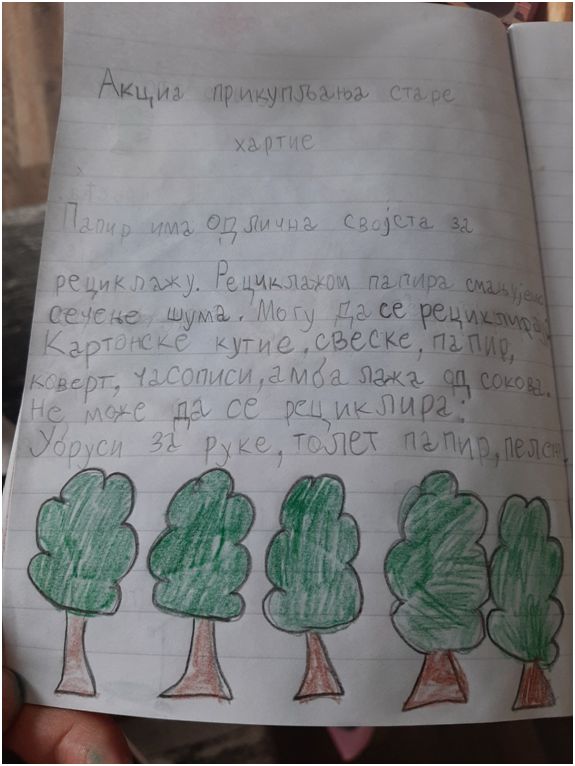 Акциа прикупљања старе
хартие
Папир има одлична својста за
рециклажу. Рециклажом папира смањујемо
сечење шума. Могу да се рециклирају:
Картонске кутие, свеске, папир,
коверт, часописи, амба лажа од сокова.
Не може да се рециклира:
Убруси за руке, толет папир, пелене